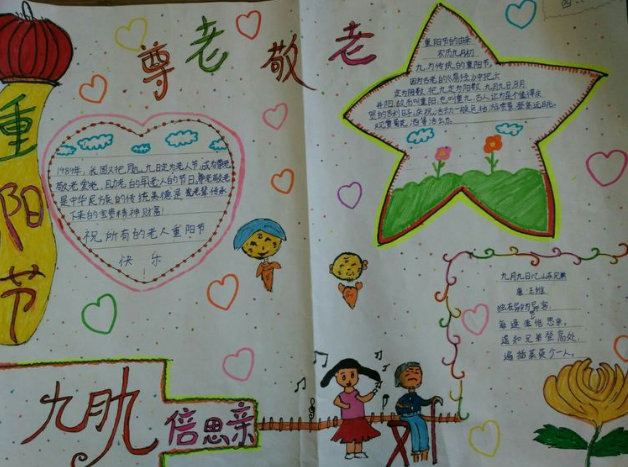 尊老敬老
重阳节
1989年,我国又把九月九日定为老人节,成为尊老
敬老爱老、
老的老人的节日,尊老敬老
是中华民族的传统美德是
下来的宝贵精神财富!
祝所有的老人重阳节
快乐
重阳节的由来
农历九月初
九,为传统的重阳节。
因为古老的《易经》中把六
定为阴数,把九定为阳数,九月九日,日月
并阳,故
重阳,也叫重九,古人认为是个值得庆
贺的吉利日子,
九月九日忆山东兄弟
唐 王维
独在异乡为异客,
每逢佳倍思亲。
遥知兄弟登高处,
遍插茱萸少一人。
九月九
倍思亲